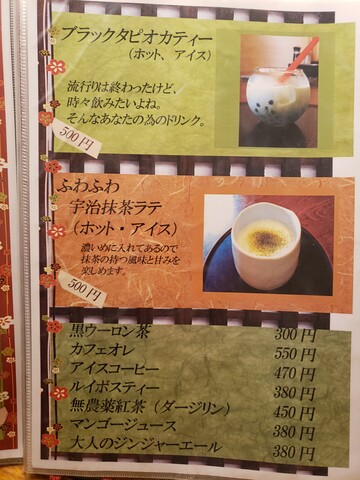 ブラックタピオカティー
(ホット、アイス)
流行りは終わったけど、
時々飲みたいよね。
そんなあなたの為のドリンク。
500円
ふわふわ
宇治抹茶ラテ
(ホット・アイス)
濃いめに入れてあるので
抹茶の持つ風味と甘みを
楽しめます。
500円
黒ウーロン茶 300円
カフェオレ 550円
アイスコーヒー 470円
ルイボスティー 380円
無農薬紅茶(ダージリン) 450円
マンゴージュース 380円
大人のジンジャーエール 380円